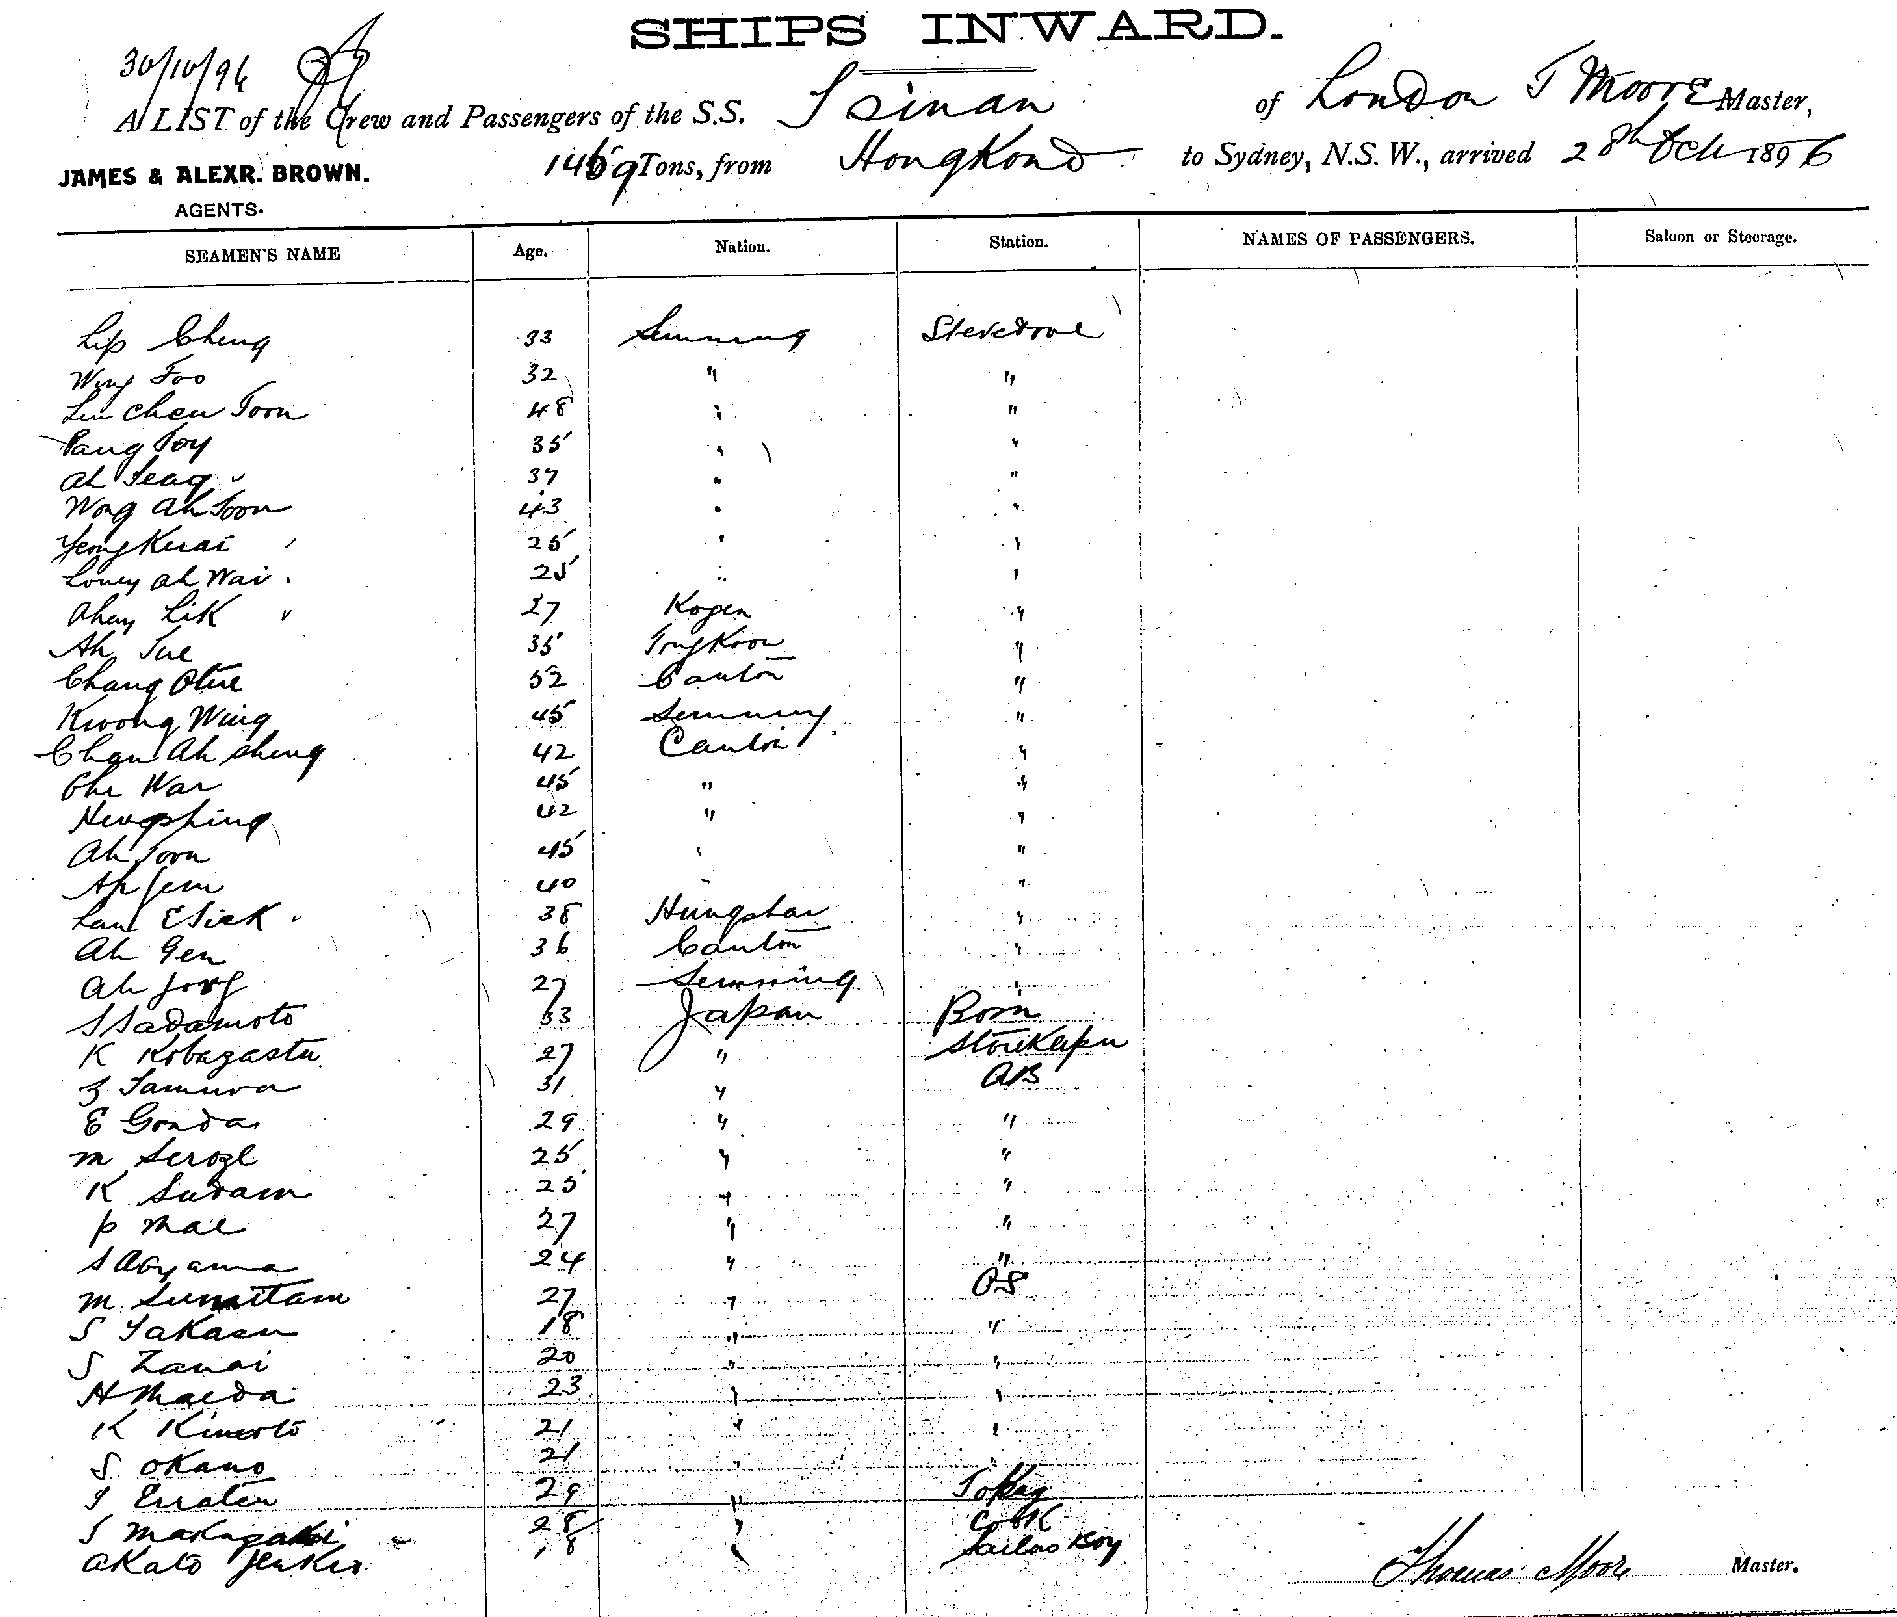 SHIPS INWARD.
30/10/96
A LIST of the Crew and Passengers of the S.S. Tsinan of London T Moore Master,
JAMES & ALEXR. BROWN. 1459 Tons, from HongKong to Sydney, N.S.W., arrived 28th Oct 1896
AGENTS.
SEAMEN'S NAME Age. Nation. Station. NAMES OF PASSENGERS. Saloon or Steerage.
Lip Cheng 33 Sunning Stevedore
Wing Foo 32 " "
Lim Cheu Toon 48 " "
Pang Toy 35 " "
Ah Seag 37 " "
Wong Ah Toon 43 " "
Yeong Kurai 25 " "
Loney Ah Wai 25 " "
Ahay Lik 27 Kogen "
Ah Tue 35 TongKoon "
Chang Otue 52 Canton "
Kwong Wing 45 Sunning "
Chan Ah Sheng 42 Canton "
Che War 45 " "
Hengshing 42 " "
Ah Toon 45 " "
Ah Sem 40 " "
Lam ESick 38 Hungshan "
Ah Gen 36 Canton "
Ah Jong 27 Sunning "
S Sadamoto 33 Japan Bosn
K Kobayastu 27 " Storekeeper
Z Tamura 31 " AB
E Gonda 29 " "
M Seroze 25 " "
K Sudam 25 " "
P Mae 27 " "
S Aoyama 24 " "
M Sumittam 27 " OS
S Takasu 18 " "
S Zanai 20 " "
H Maeda 23 " "
K Kimoto 21 " "
S Okano 21 " "
I Erraten 29 "
S Makagaki 28 " Cook
Akato Jenkis 18 " Sailors Boy
Thomas Moore Master.